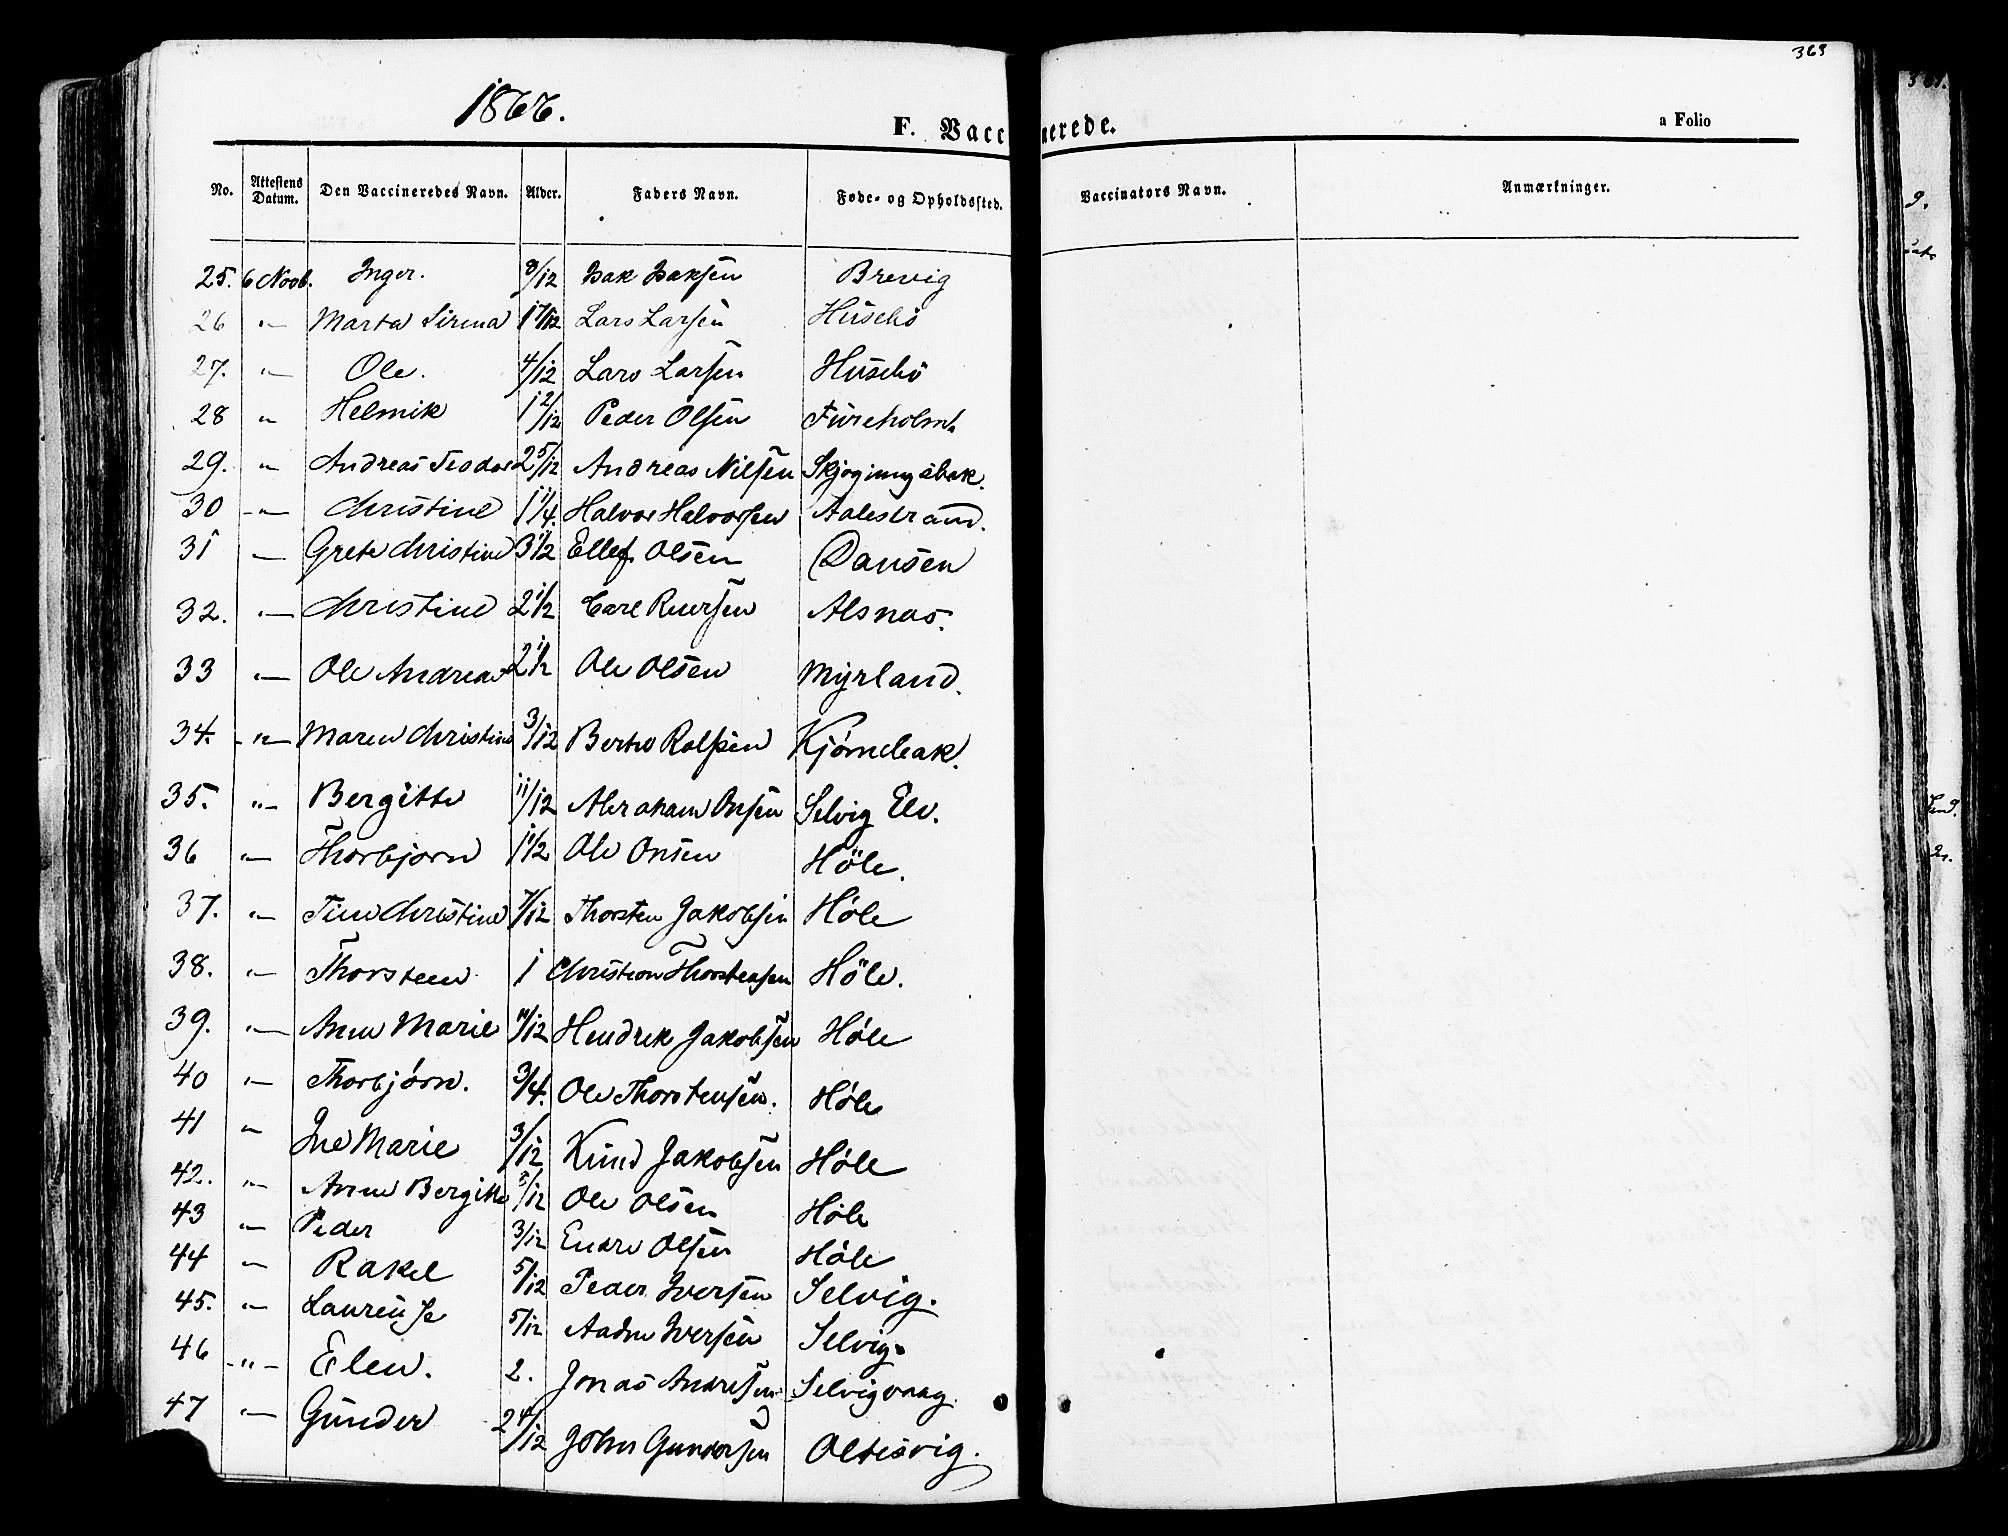 363
1866.
F. Vaccinerede.
a Folio
No. Attestens Datum. Den Vaccineredes Navn. Alder. Faders Navn. Føde- og Opholdssted. Vaccinators Navn. Anmærkninger.
25. 6 Novb. Inger. 8/12 Isak Isaksen Brevig
26 " Marta Sirina 1 7/12 Lars Larsen Husebø
27. " Ole. 4/12 Lars Larsen Husebø
28 " Helmik 1 2/12 Peder Olsen Fureholm
29. " Andreas Teodor 2 5/12 Andreas Nilsen
30 " Christine 1 1/4. Halvor Halvorsen Aalestrand.
31 " Grete Christine 3 1/2 Ellef Olsen Dansen
32. " Christine 2 1/2 Carl Reiersen Alsnas.
33 " Ole Andreas 2 1/2 Ole Olsen Myrland.
34. " Maren Christine 3/12 Kjørnebak.
35. " Bergitte 11/12 Abraham Onsen Selvig Elv.
36 " Thorbjorn 1 1/2 Ole Onsen Höle.
37. " Tine Christine 7/12 Thorsten Jakobsen Høle
38. " Thorsteen 1 Christian Thorstensen Höle.
39. " Anne Marie 11/12 Hendrek Jakobsen Høle
40 " Thorbjørn. 3/4. Ole Thorstensen. Høle
41 " Ine Marie 3/12 Knud Jakobsen Høle
42. " Anne Bergitte 5/12 Ole Olsen Høle
43 " Peder 3/12 Endre Olsen Høle
44 " Rakel 5/12 Peder Iversen Selvig.
45. " Laurense 5/12 Aadne Iversen Selvig.
46 " Elen. 2. Jonas Andresen Selvigvaag.
47 " Gunder 2 4/12 John Gundersen Oltesvig.